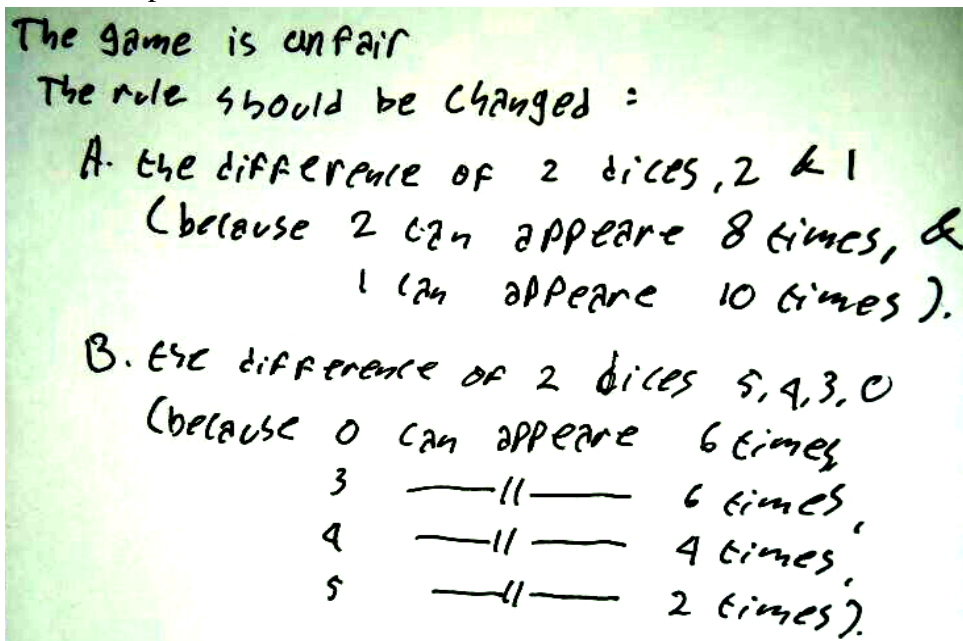 The game is unfair
The rule should be changed :
A. the difference of 2 dices, 2 & 1
(because 2 can appeare 8 times, &
1 can appeare 10 times).
B. the difference of 2 dices 5, 4, 3, 0
(because 0 can appeare 6 times,
3 —〃— 6 times,
4 —〃— 4 times,
5 —〃— 2 times).